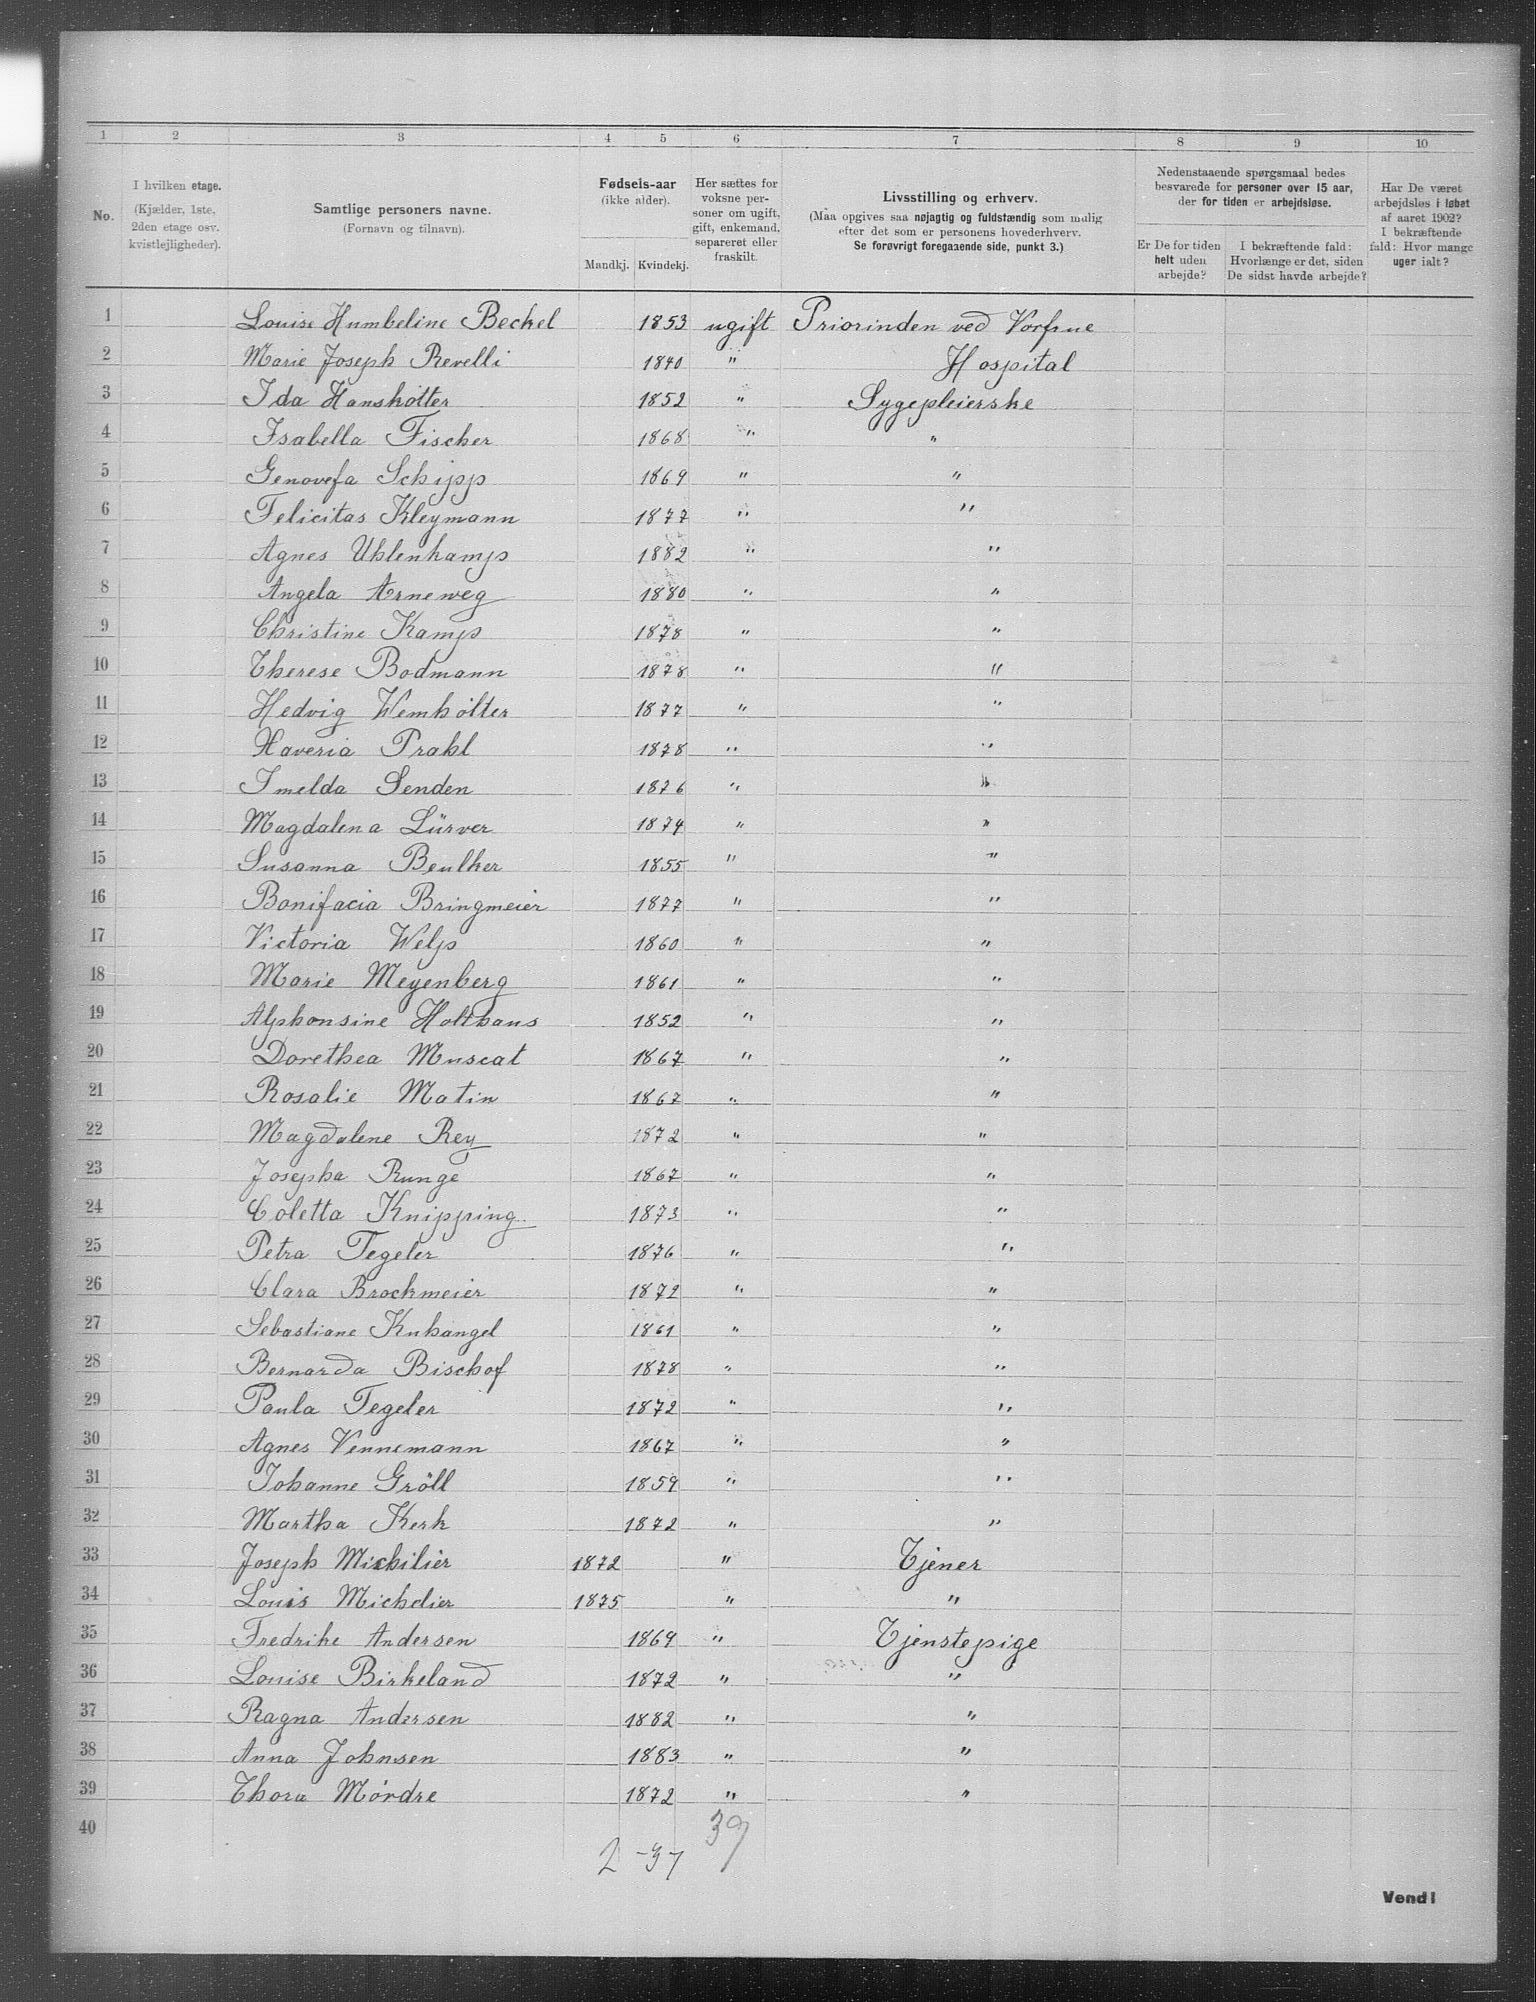 1 2 3 4 5 6 7 8 9 10
No.
I hvilken etage.
(Kjælder, 1ste,
2den etage osv.
kvistlejligheder).
Samtlige personers navne.
(Fornavn og tilnavn).
Fødsels-aar
(ikke alder).
Mandkj. Kvindekj.
Her sættes for
voksne per-
soner om ugift,
gift, enkemand,
separeret eller
fraskilt.
Livsstilling og erhverv.
(Maa opgives saa nøjagtig og fuldstændig som mulig
efter det som er personens hovederhverv.
Se forøvrigt foregaaende side, punkt 3.)
Nedenstaaende spørgsmaal bedes
besvarede for personer over 15 aar,
der for tiden er arbejdsløse.
Er De for tiden
helt uden
arbejde?
I bekræftende fald:
Hvorlænge er det, siden
De sidst havde arbejde?
Har De været
arbejdsløs i løbet
af aaret 1902?
I bekræftende
fald: Hvor mange
uger ialt?
1 Louise Humbeline Beckel 1853 ugift Priorinden ved Vorfrue
2 Marie Joseph Revelli 1840 " Hospital
3 Ida Hanshölter 1852 " Sygepleierske
4 Isabella Fischer 1868 " "
5 Genovefa Schipp 1869 " "
6 Felicitas Kleymann 1877 " "
7 Agnes Uhlenkamp 1882 " "
8 Angela Arneweg 1880 " "
9 Christine Kamp 1878 " "
10 Therese Bodmann 1878 " "
11 Hedvig Wemhölter 1877 " "
12 Xaveria Prahl 1878 " "
13 Imelda Senden 1876 " "
14 Magdalena Lürver 1874 " "
15 Susanna Beulker 1855 " "
16 Bonifacia Bringmeier 1877 " "
17 Victoria Welp 1860 " "
18 Marie Meyenberg 1861 " "
19 Alphonsine Holthaus 1852 " "
20 Dorethea Muscat 1867 " "
21 Rosalie Matin 1867 " "
22 Magdalene Rey 1872 " "
23 Josepha Runge 1867 " "
24 Coletta Knipping 1873 " "
25 Petra Tegeler 1876 " "
26 Clara Brockmeier 1872 " "
27 Sebastiane Kuhangel 1861 " "
28 Bernarda Bischof 1878 " "
29 Paula Tegeler 1872 " "
30 Agnes Vennemann 1867 " "
31 Johanne Gröll 1859 " "
32 Martha Kerk 1872 " "
33 Joseph Michilier 1872 " Tjener
34 Louis Michelier 1875 " "
35 Fredrike Andersen 1869 " Tjenstepige
36 Louise Birkeland 1872 " "
37 Ragna Andersen 1882 " "
38 Anna Johnsen 1883 " "
39 Thora Mørdre 1872 " "
40
39
2 - 37
Vend!